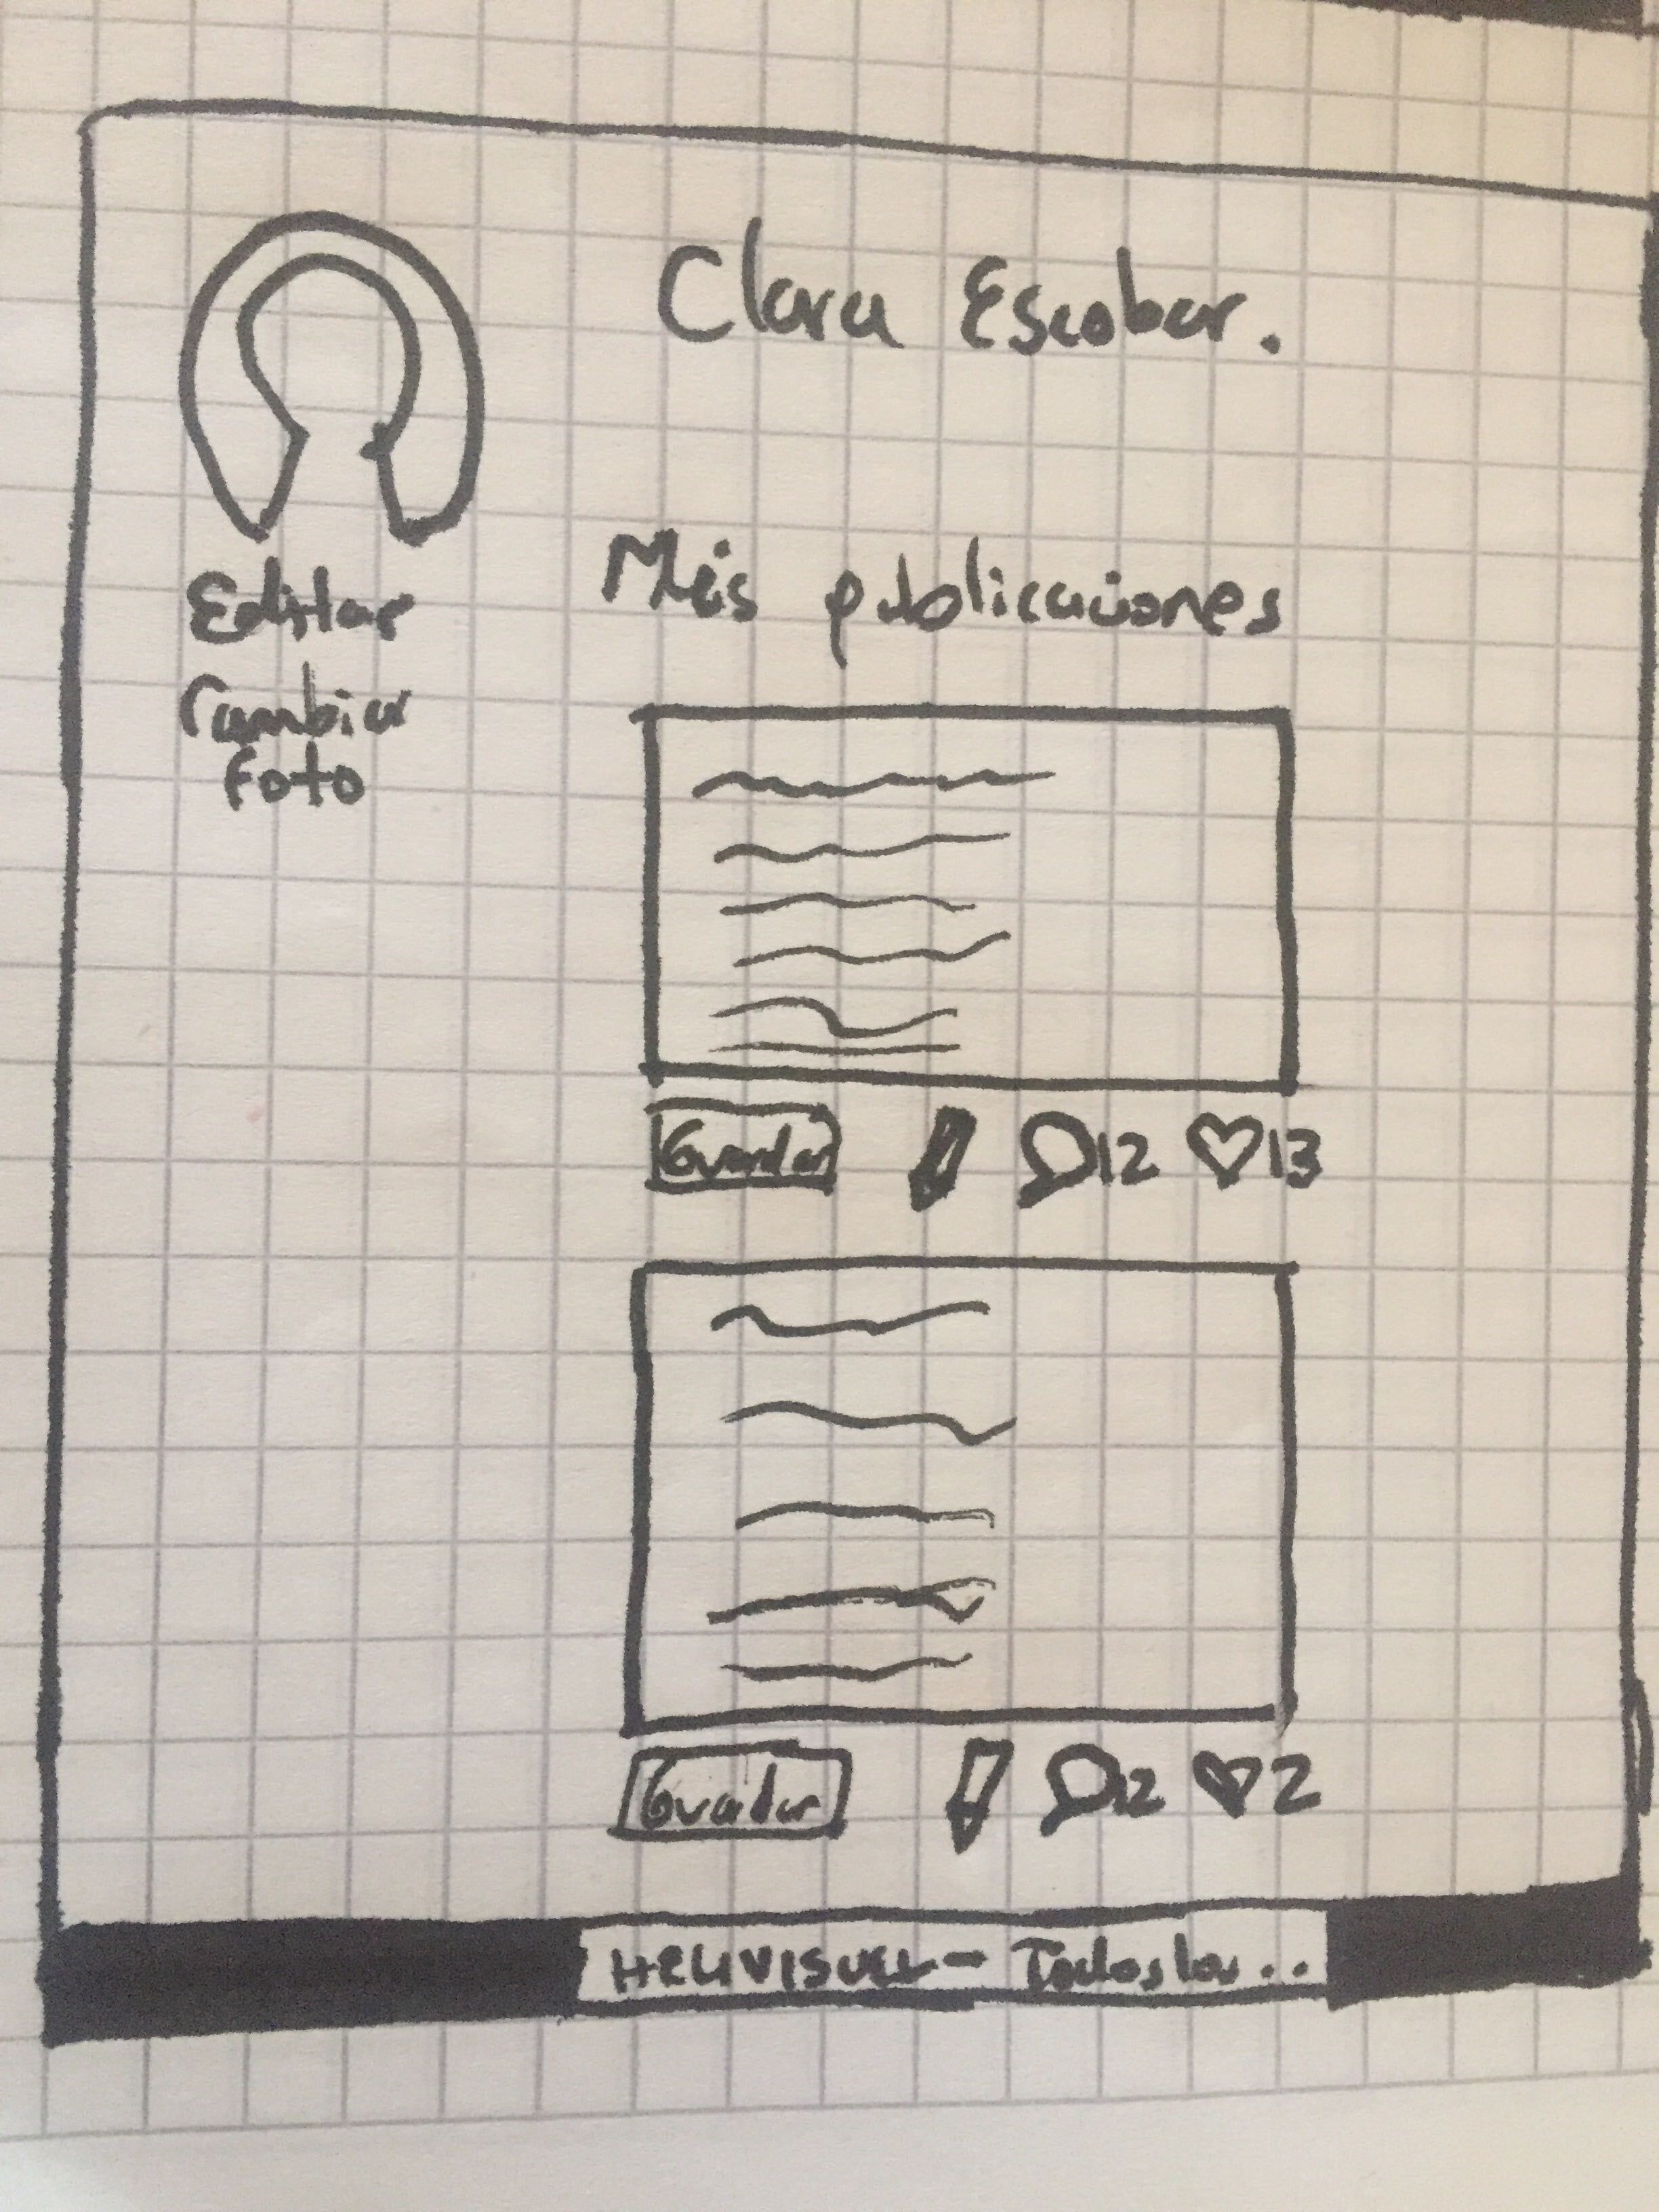 Clara Escobar.
Editar
Cambiar
foto
Mis publicaciones
Guardar 12 13
Guardar 12 2
- Todos los ..